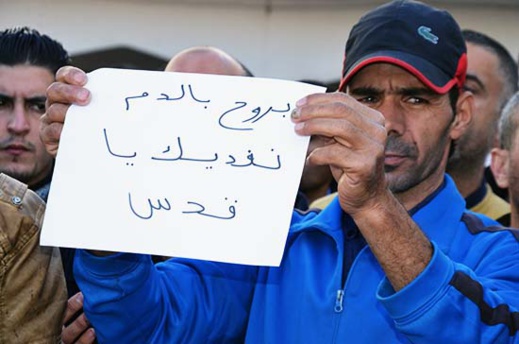 بروح بالدم
نفديك يا
قدس